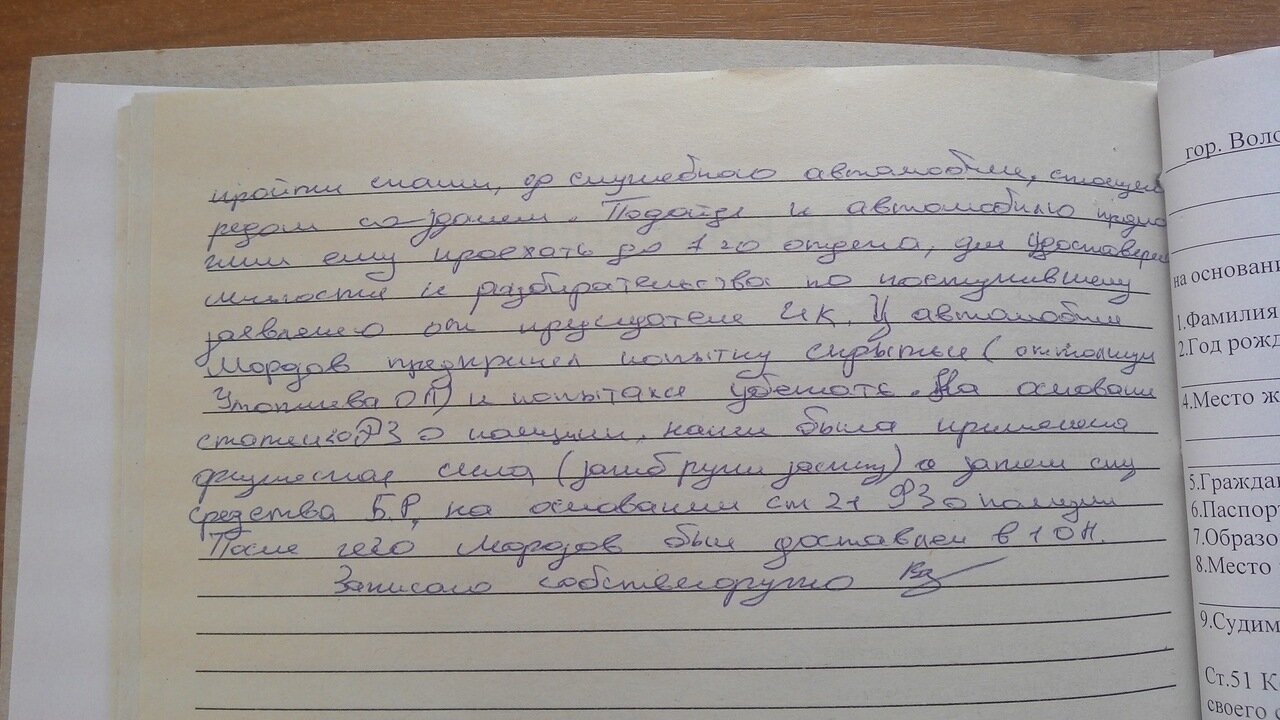 пройти с нами, до служебного автомобиля, стоящем
рядом со зданием. Подойдя к автомобилю предло
жили ему проехать до 1 го отдела, для удостоверен
личности и разбирательства по поступившему
заявлению от председателя ИК. У автомобиля
Морозов предпринял попытку скрыться (оттолкнул
ОП) и попытался убежать. На основании
статьи 20 ФЗ о полиции, нами была применена
физическая сила (загиб руки за спину) а затем спец
средства Б.Р, на основании ст 21 ФЗ о полиции
После чего Морозов был доставлен в 1 ОП.
Записано собственоручно
гор. Воло
на основани
1.Фамилия
2.Год рожд
4.Место ж
5.Граждан
6.Паспорт
7.Образо
8.Место
9.Судим
Ст.51 К
своего с